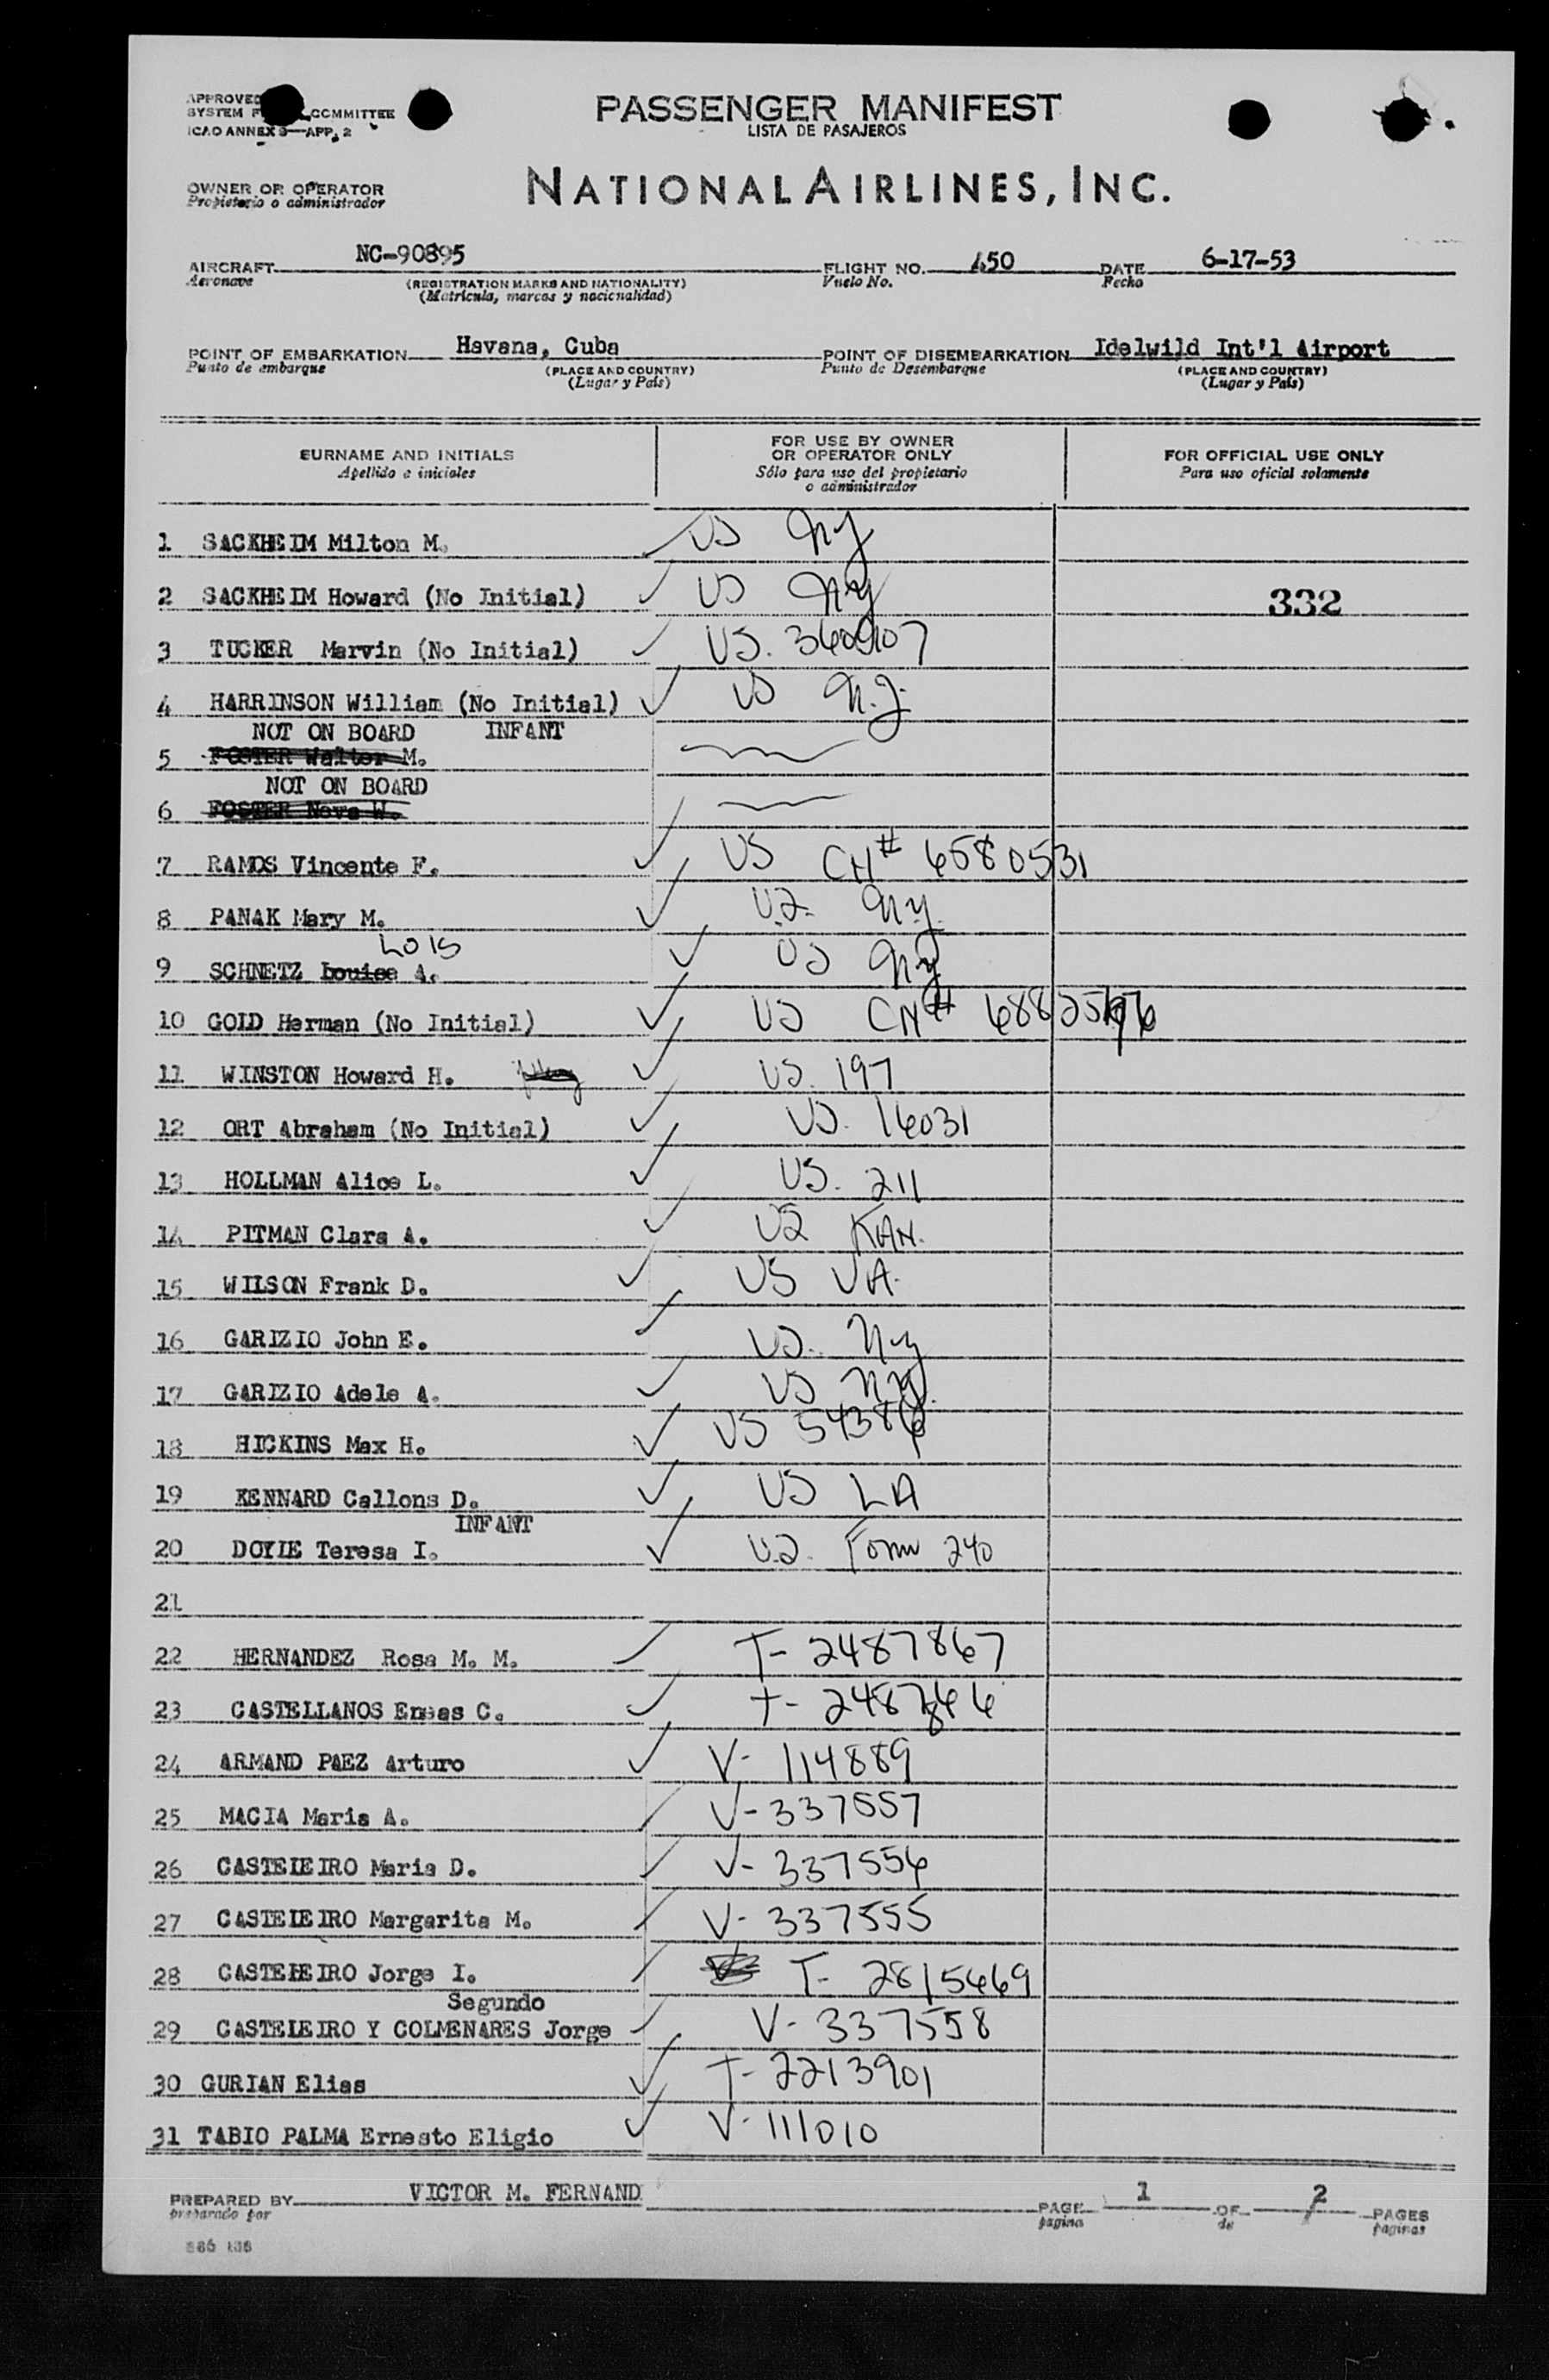 APPROVED
SYSTEM COMMITTEE
ICAO ANNEX 9—APP. 2
PASSENGER MANIFEST
LISTA DE PASAJEROS
OWNER OR OPERATOR
Propietario o administrador
NATIONAL AIRLINES, INC.
AIRCRAFT NC-90895 FLIGHT NO. 450 DATE 6-17-53
Aeronave (REGISTRATION MARKS AND NATIONALITY) Vuelo No. Fecha
(Matrícula, marcas y nacionalidad)
POINT OF EMBARKATION Havana, Cuba POINT OF DISEMBARKATION Idelwild Int'l Airport
Punto de embarque (PLACE AND COUNTRY) Punto de Desembarque (PLACE AND COUNTRY)
(Lugar y País) (Lugar y País)
SURNAME AND INITIALS
Apellido e iniciales
FOR USE BY OWNER
OR OPERATOR ONLY
Sólo para uso del propietario
o administrador
FOR OFFICIAL USE ONLY
Para uso oficial solamente
1 SACKHEIM Milton M. US NY
2 SACKHEIM Howard (No Initial) US NY 332
3 TUCKER Marvin (No Initial) US.
4 HARRINSON William (No Initial) US N.J.
NOT ON BOARD INFANT
5 FOSTER Walter M.
NOT ON BOARD
6 FOSTER W.
7 RAMOS Vincente F. US CN# 6580531
8 PANAK Mary M. U.S. NY
LOIS
9 SCHNETZ Louise A. US NY
10 GOLD Herman (No Initial) US CN#
11 WINSTON Howard H. US. 197
12 ORT Abraham (No Initial) US. 16031
13 HOLLMAN Alice L. US. 211
14 PITMAN Clara A. US KAN.
15 WILSON Frank D. US VA.
16 GARIZIO John E. US. NY
17 GARIZIO Adele A. US NY
18 HICKINS Max H. US 54386
19 KENNARD Callons D. US LA
INFANT
20 DOYLE Teresa I. U.S. Form 240
21
22 HERNANDEZ Rosa M. M. T- 2487867
23 CASTELLANOS C. T-
24 ARMAND PAEZ Arturo V- 114889
25 MACIA Maria A. V-337557
26 CASTELEIRO Maria D. V- 337556
27 CASTELEIRO Margarita M. V- 337555
28 CASTELEIRO Jorge I. T- 2815469
Segundo
29 CASTELEIRO Y COLMENARES Jorge V- 337558
30 GURIAN Elias T- 2213901
31 TABIO PALMA Ernesto Eligio V- 111010
PREPARED BY VICTOR M. FERNAND PAGE 1 OF 2 PAGES
preparado por página de páginas